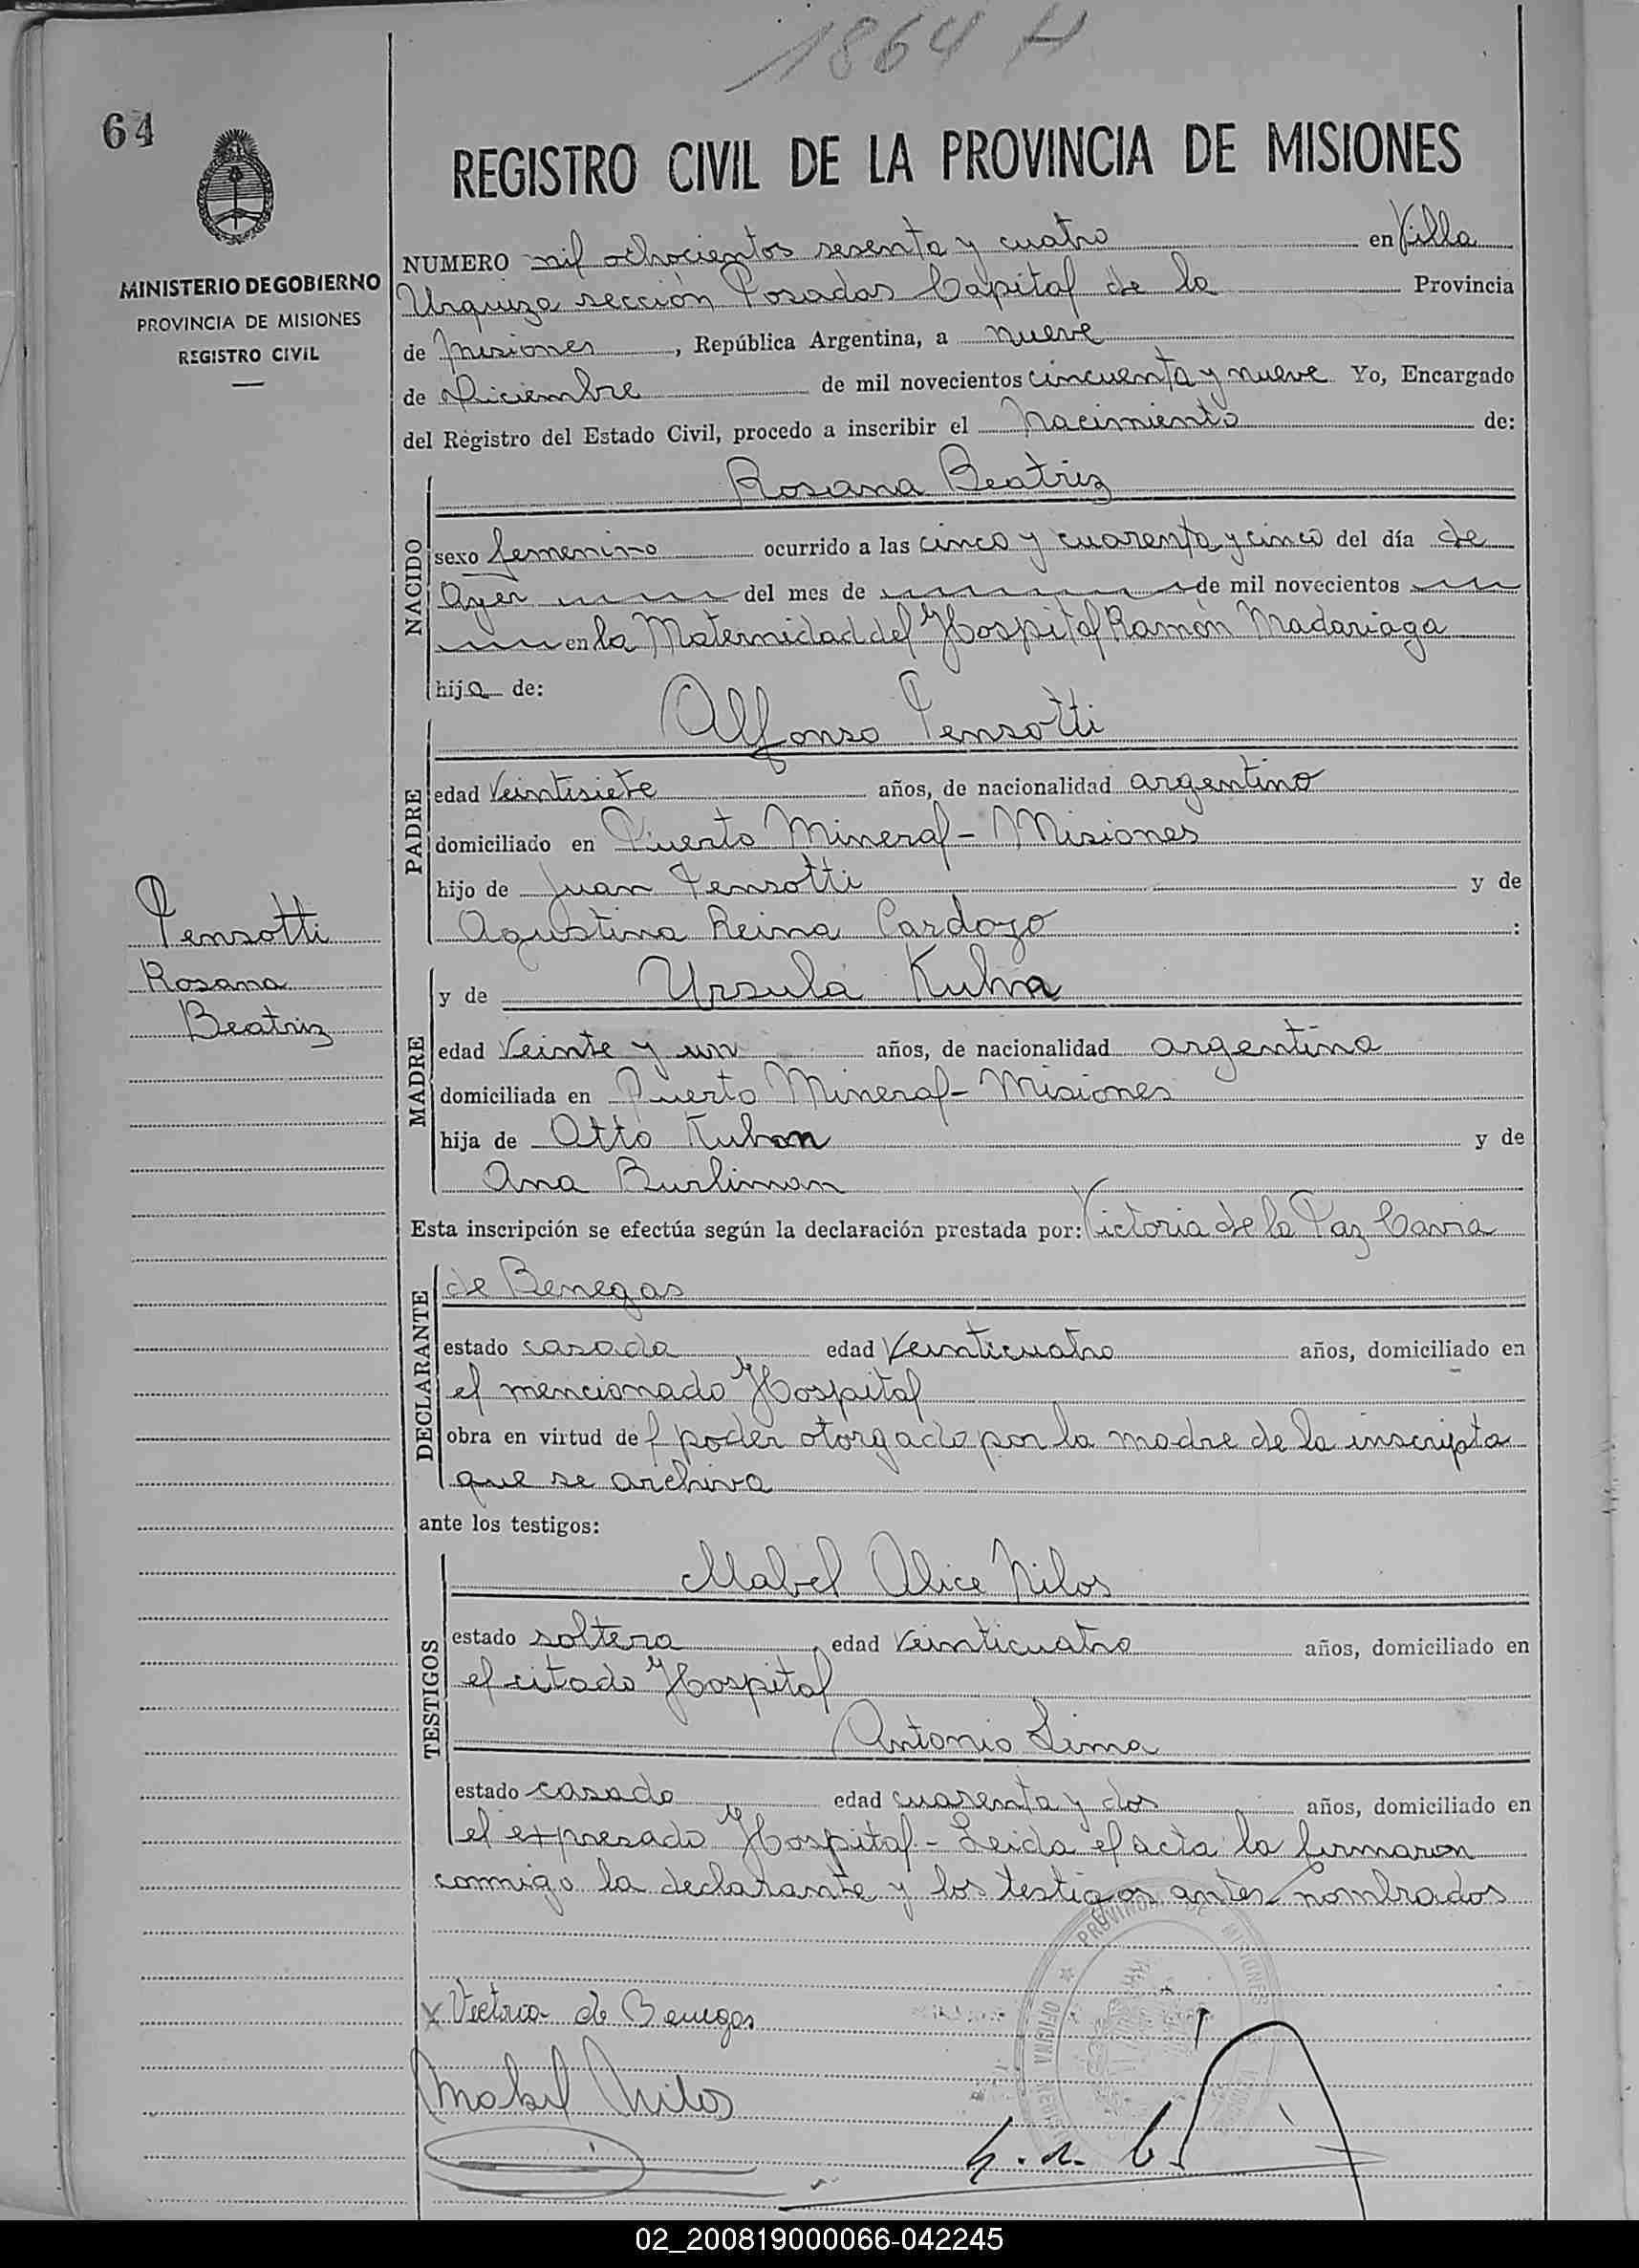 1864 H
64
REGISTRO CIVIL DE LA PROVINCIA DE MISIONES
MINISTERIO DE GOBIERNO
PROVINCIA DE MISIONES
REGISTRO CIVIL
NUMERO mil ochocientos sesenta y cuatro en Villa
Urquiza sección Posadas Capital de la Provincia
de Misiones, República Argentina, a nueve
de Diciembre de mil novecientos cincuenta y nueve Yo, Encargado
del Registro del Estado Civil, procedo a inscribir el Nacimiento de:
NACIDO
Rosana Beatriz
sexo femenino ocurrido a las cinco y cuarenta y cinco del día de
Ayer del mes de de mil novecientos
en la Maternidad del Hospital Ramón Madariaga
hija de:
PADRE
Alfonso Pensotti
edad Veintisiete años, de nacionalidad argentino
domiciliado en Puerto Mineral - Misiones
hijo de Juan Pensotti y de
Agustina Reina Cardozo :
Pensotti
Rosana
Beatriz
MADRE
y de Ursula Kuhn
edad Veinte y un años, de nacionalidad argentina
domiciliada en Puerto Mineral - Misiones
hija de Otto Kuhn y de
Ana Burliman
Esta inscripción se efectúa según la declaración prestada por: Victoria de la Paz
DECLARANTE
de Benegas
estado casada edad Veinticuatro años, domiciliado en
el mencionado Hospital
obra en virtud del poder otorgado por la madre de la inscripta
que se archiva
ante los testigos:
TESTIGOS
Mabel Alice Nilos
estado soltera, edad Veinticuatro años, domiciliado en
el citado Hospital
Antonio Lima
estado casado edad cuarenta y dos años, domiciliado en
el expresado Hospital - Leida el acta la firmaron
conmigo la declarante y los testigos antes nombrados
PROVINCIA DE MISIONES
x Victoria de Benegas
Mabel Nilos
02_200819000066-042245